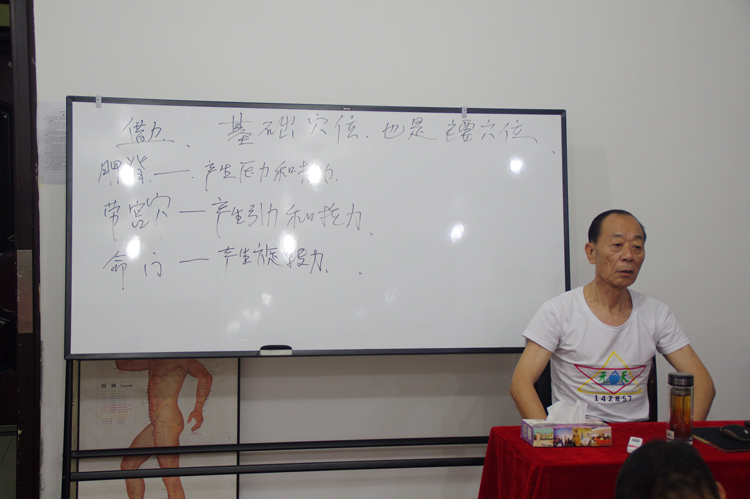 借力. 基础穴位. 也是主要穴位.
— 产生压力和力.
劳宫穴 — 产生引力和力.
命门 — 产生旋转力.
142857